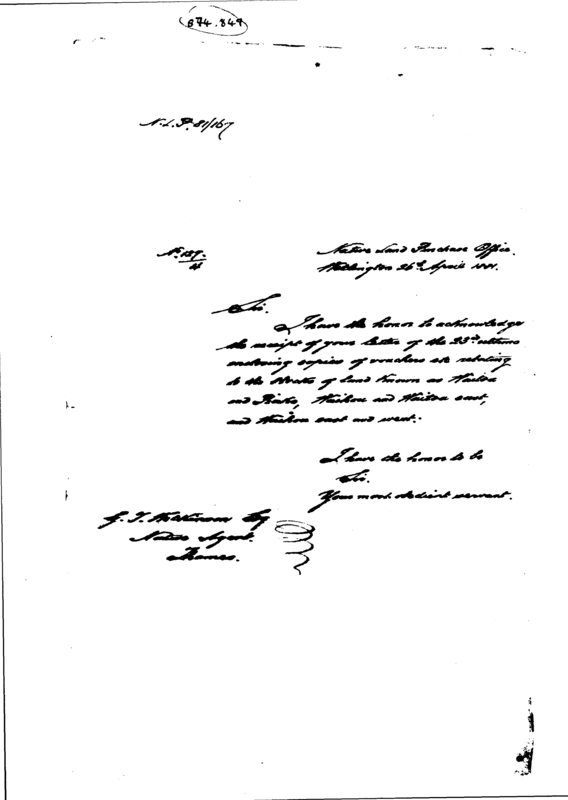 874.847
N.L.P. 81/167
No. 189/4
Native Land Purchase Office.
Wellington 26th April 1881.
Sir.
I have the honor to acknowledge
the receipt of your letter of the 23rd ultimo
enclosing copies of vouchers etc relating
to the Blocks of land known as Waitoa
and Piako, Waihou and Waitoa east,
and Waihou east and west.
I have the honor to be
Sir.
Your most obedient servant.
G. T. Wilkinson Esq
Native Agent.
Thames.